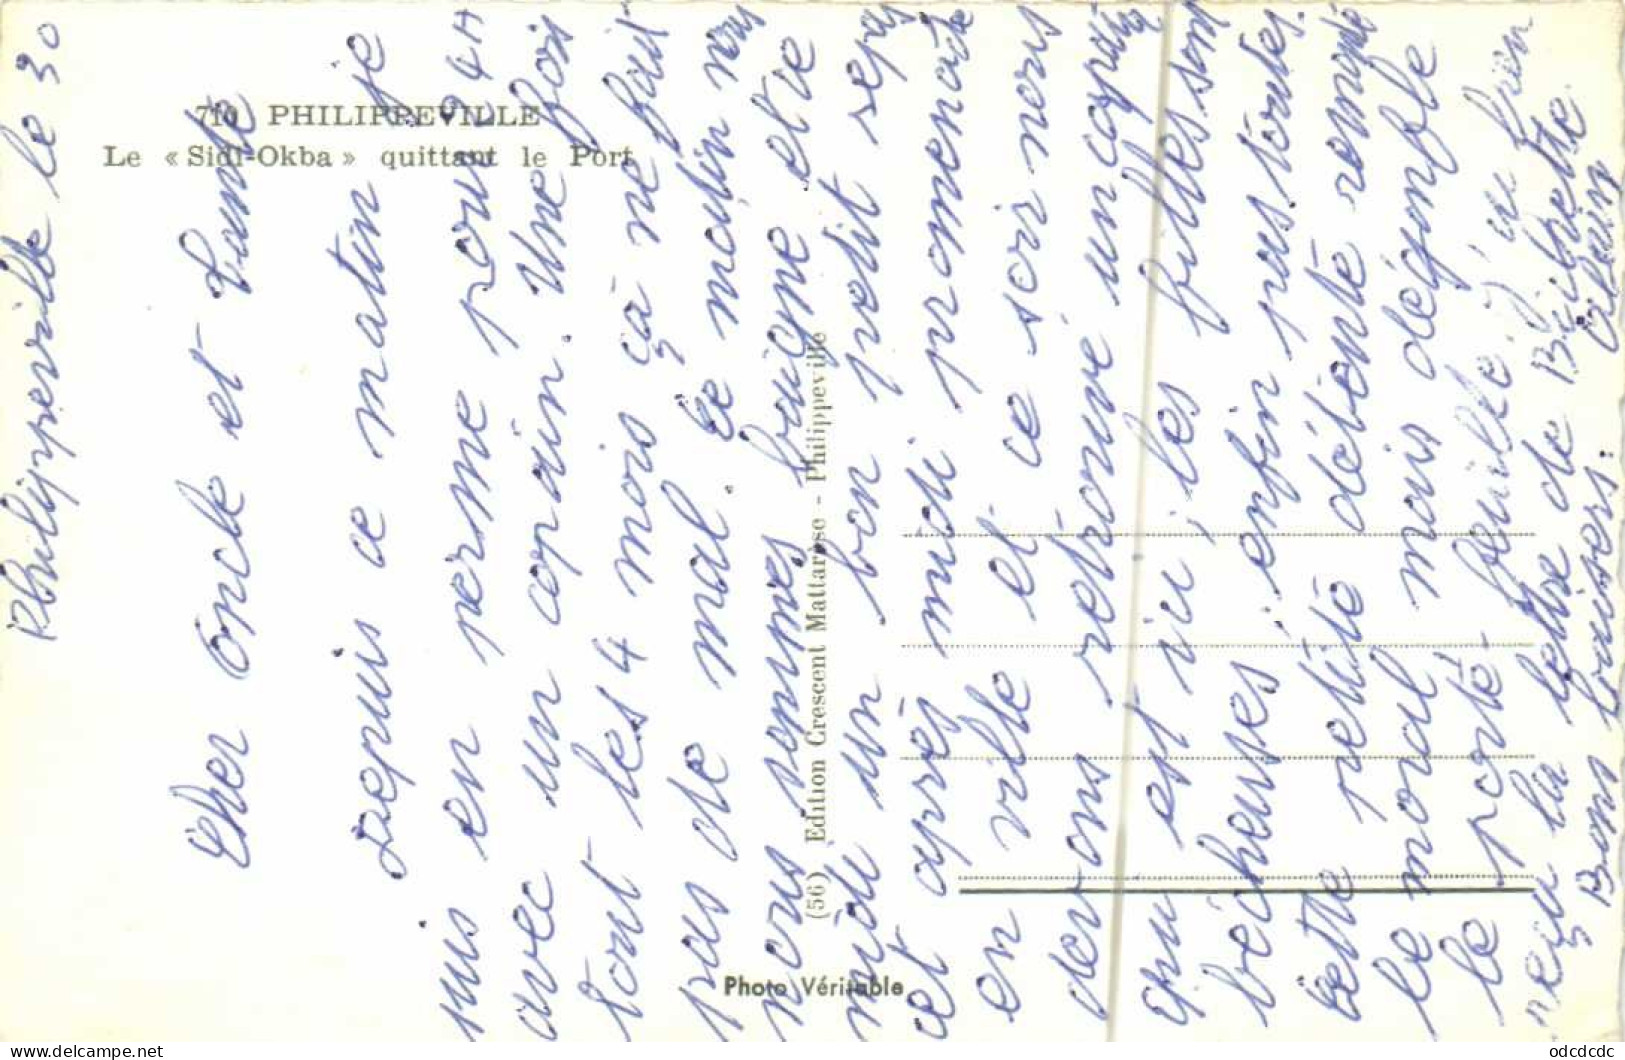 710 PHILIPPEVILLE
Le « Sidi-Okba » quittant le Port
(56) Edition Crescent Mattarèse - Philippeville
Photo Véritable
Philippeville le 30
Cher Oncle et Tante
Depuis ce matin je
suis en perme pour 24H
avec un copain. Une fois
tout les 4 mois ça ne fait
pas de mal. Ce matin nous
nous sommes baigné et ce
midi un bon petit repas
et après midi promenade
en ville et ce soir nous
devons retrouvé un copain
qui est ici, les filles sont
bécheuses, enfin pas toutes.
Cette petite détente remonte
le moral mais dégonfle
le porte-feuille. J'ai bien
reçu la lettre de Biquette
Bons baisers. Alain
odcdcdc